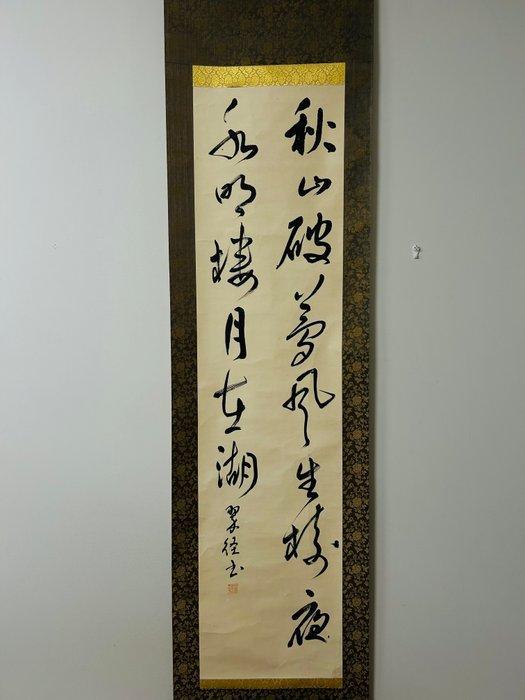 秋山破夢風生樹夜
水明樓月在湖
翠径書